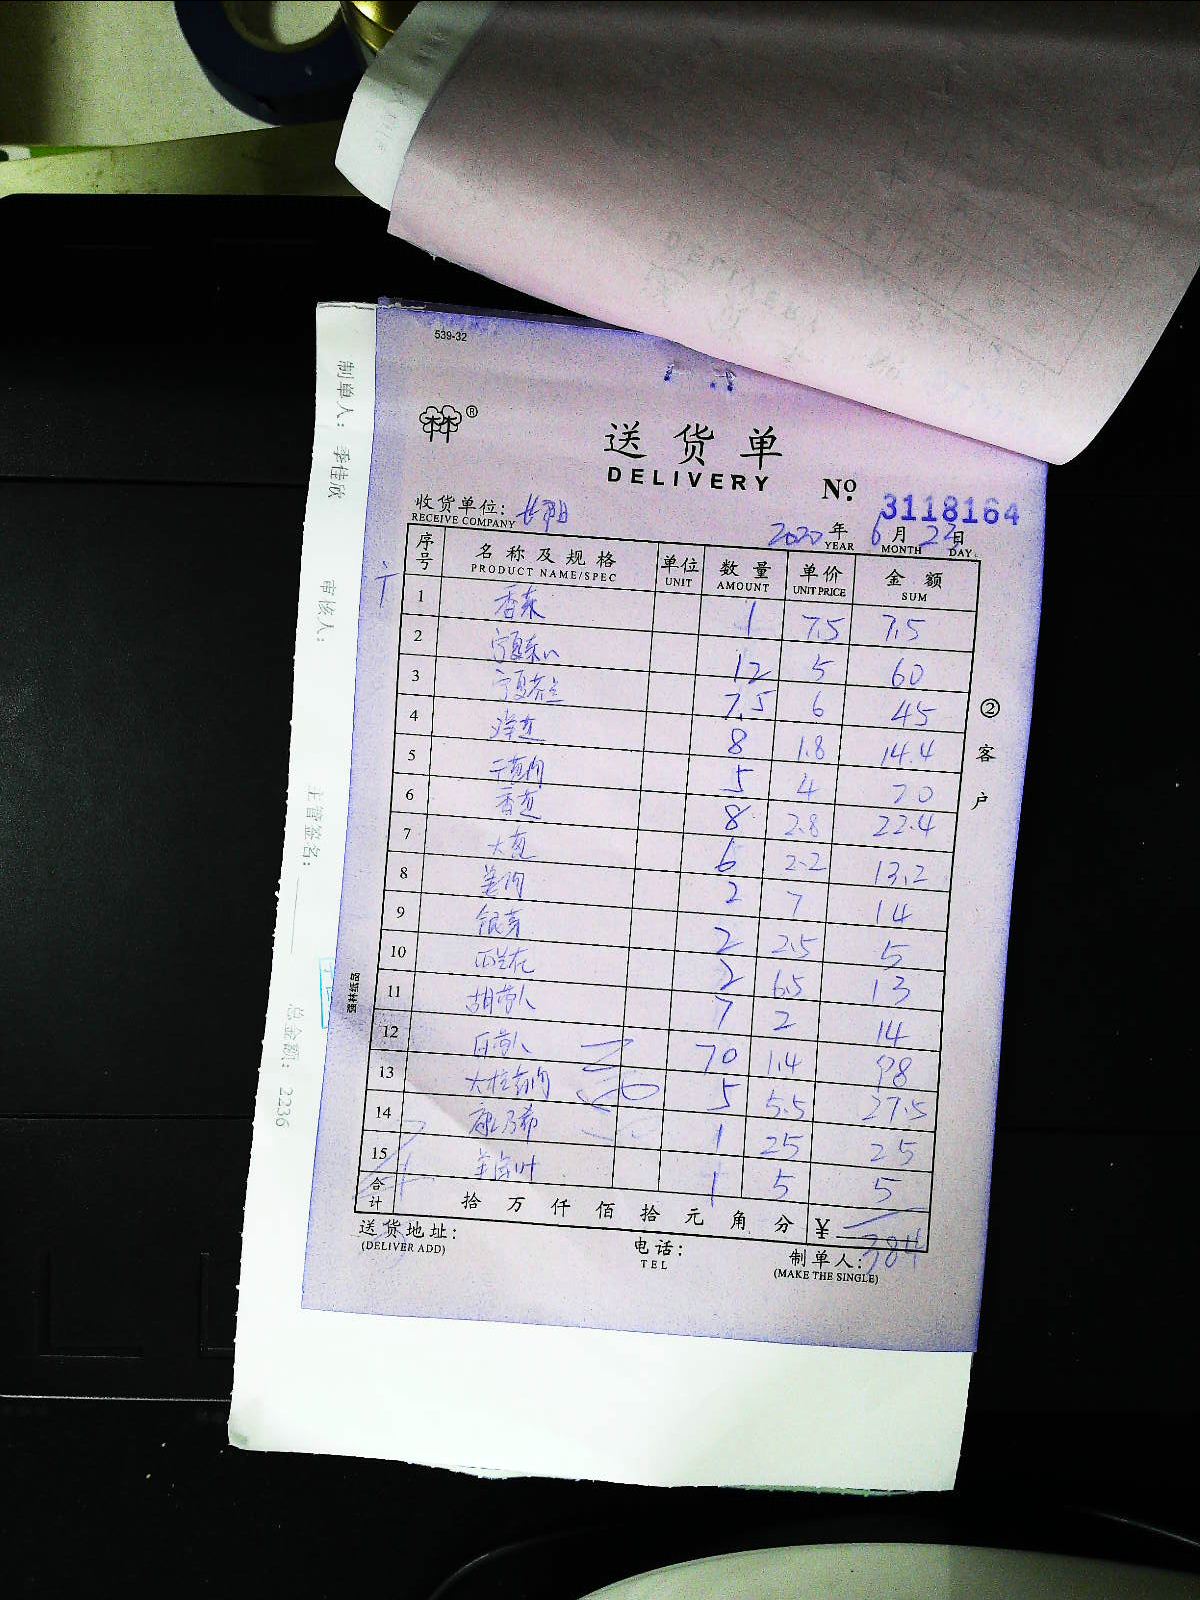 539-32
林林®
送货单
DELIVERY
No. 3118164
收货单位: 长阳
RECEIVE COMPANY
2020 年 6 月 22 日
YEAR MONTH DAY
序号 名称及规格 单位 数量 单价 金额
PRODUCT NAME/SPEC UNIT AMOUNT UNIT PRICE SUM
1 香菜 1 7.5 7.5
2 宁夏菜心 12 5 60
3 宁夏芥兰 7.5 6 45
4 洋芝 8 1.8 14.4
5 5 4 20
6 香芝 8 2.8 22.4
7 大 6 2.2 13.2
8 姜肉 2 7 14
9 银芽 2 2.5 5
10 西兰花 2 6.5 13
11 胡萝卜 7 2 14
12 白萝卜 70 1.4 98
13 5 5.5 27.5
14 康乃希 1 25 25
15 叶 1 5 5
合计 拾 万 仟 佰 拾 元 角 分 ¥ 384
送货地址:
(DELIVER ADD)
电话:
TEL
制单人:
(MAKE THE SINGLE)
②客户
强林纸品
制单人: 季佳欣
审核人:
主管签名:
总金额: 2236